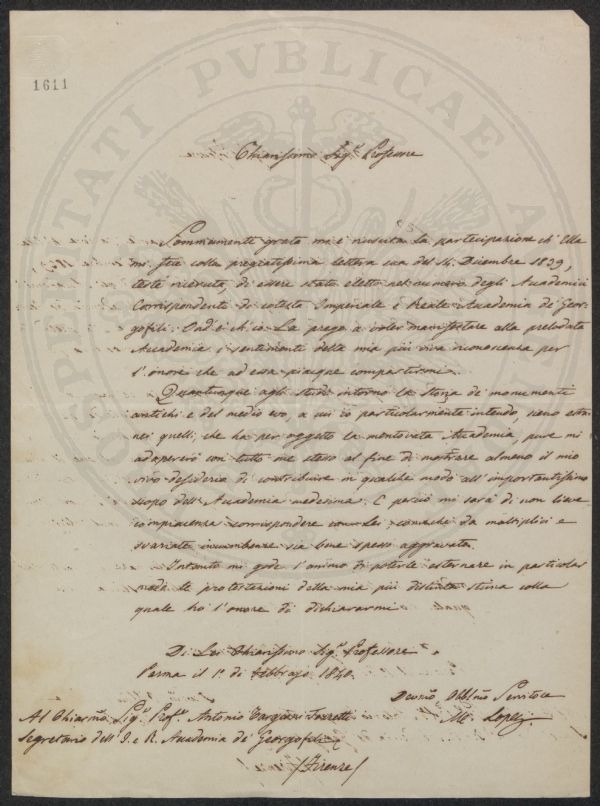 1611
Chiarissimo Sig.r Professore
Sommamente grata mi è riuscita la partecipazione ch'Ella
mi fece colla pregiatissima lettera sua del 14. Dicembre 1839,
testè ricevuta, di essere stato eletto nel numero degli Accademici
Corrispondenti di cotesta Imperiale e Reale Accademia de' Geor-
gofili. Ond'è ch'io La prego a voler manifestare alla prelodata
Accademia i sentimenti della mia più viva riconoscenza per
l'onore che ad essa piacque compartirmi.
Quantunque agli studi intorno la storia de' monumenti
antichi e del medio evo, a cui io particolarmente intendo, sieno estra-
nei quelli, che ha per oggetto la mentovata Accademia, pure mi
adoprerò con tutto me stesso al fine di mostrare almeno il mio
vivo desiderio di contribuire in qualche modo all'importantissimo
scopo dell'Accademia medesima. E perciò mi sarà di non lieve
compiacenza corrispondere con Lei, comechè da moltiplici e
svariate incumbenze sia bene spesso aggravato.
Intanto mi gode l'animo di poterle esternare in particolar
modo le protestazioni della mia più distinta stima colla
quale ho l'onore di dichiararmi
Di Lei Chiarissimo Sig.r Professore
Parma il 1.° di Febbrajo 1840.
Devmo Obblmo Servitore
M. Lopez
Al Chiarmo Sig.r Prof.r Antonio Targioni Tozzetti
Segretario dell'I. e R. Accademia de' Georgofili
(Firenze)